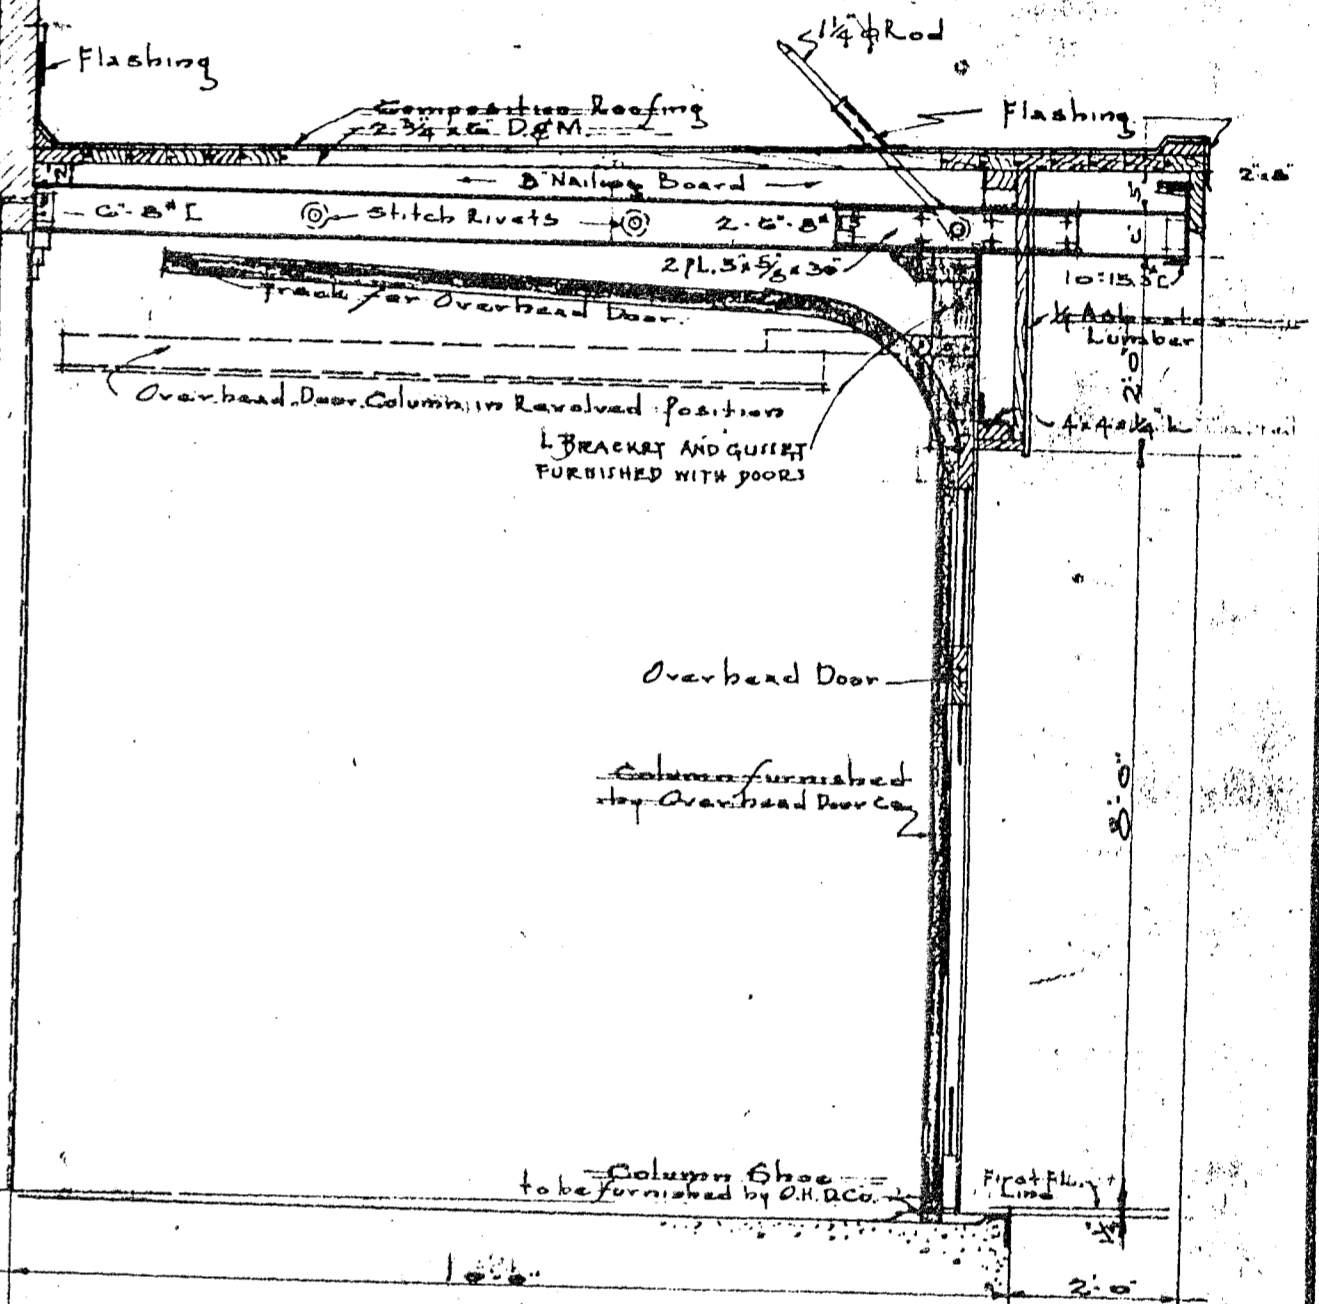 1¼"ϕ Rod
Flashing
Composition Roofing
Flashing
2-¾"x6" D&M.
8" Nailing Board
2"x8"
6"-8# [
Stitch Rivets
2-6"-8#
2 PL. 5"x 5/8 x 30"
10"15.3# [
Track for Overhead Door.
¼ Asbestos
Lumber
2'-0"
Overhead Door Column in Revolved Position
4x4x¼" L
L BRACKET AND GUSSET
FURNISHED WITH DOORS
Overhead Door
Column furnished
by Overhead Door Co.
8'-0"
Column Shoe
to be furnished by O.H.D.Co.
First Fl.
Line
2'-0"